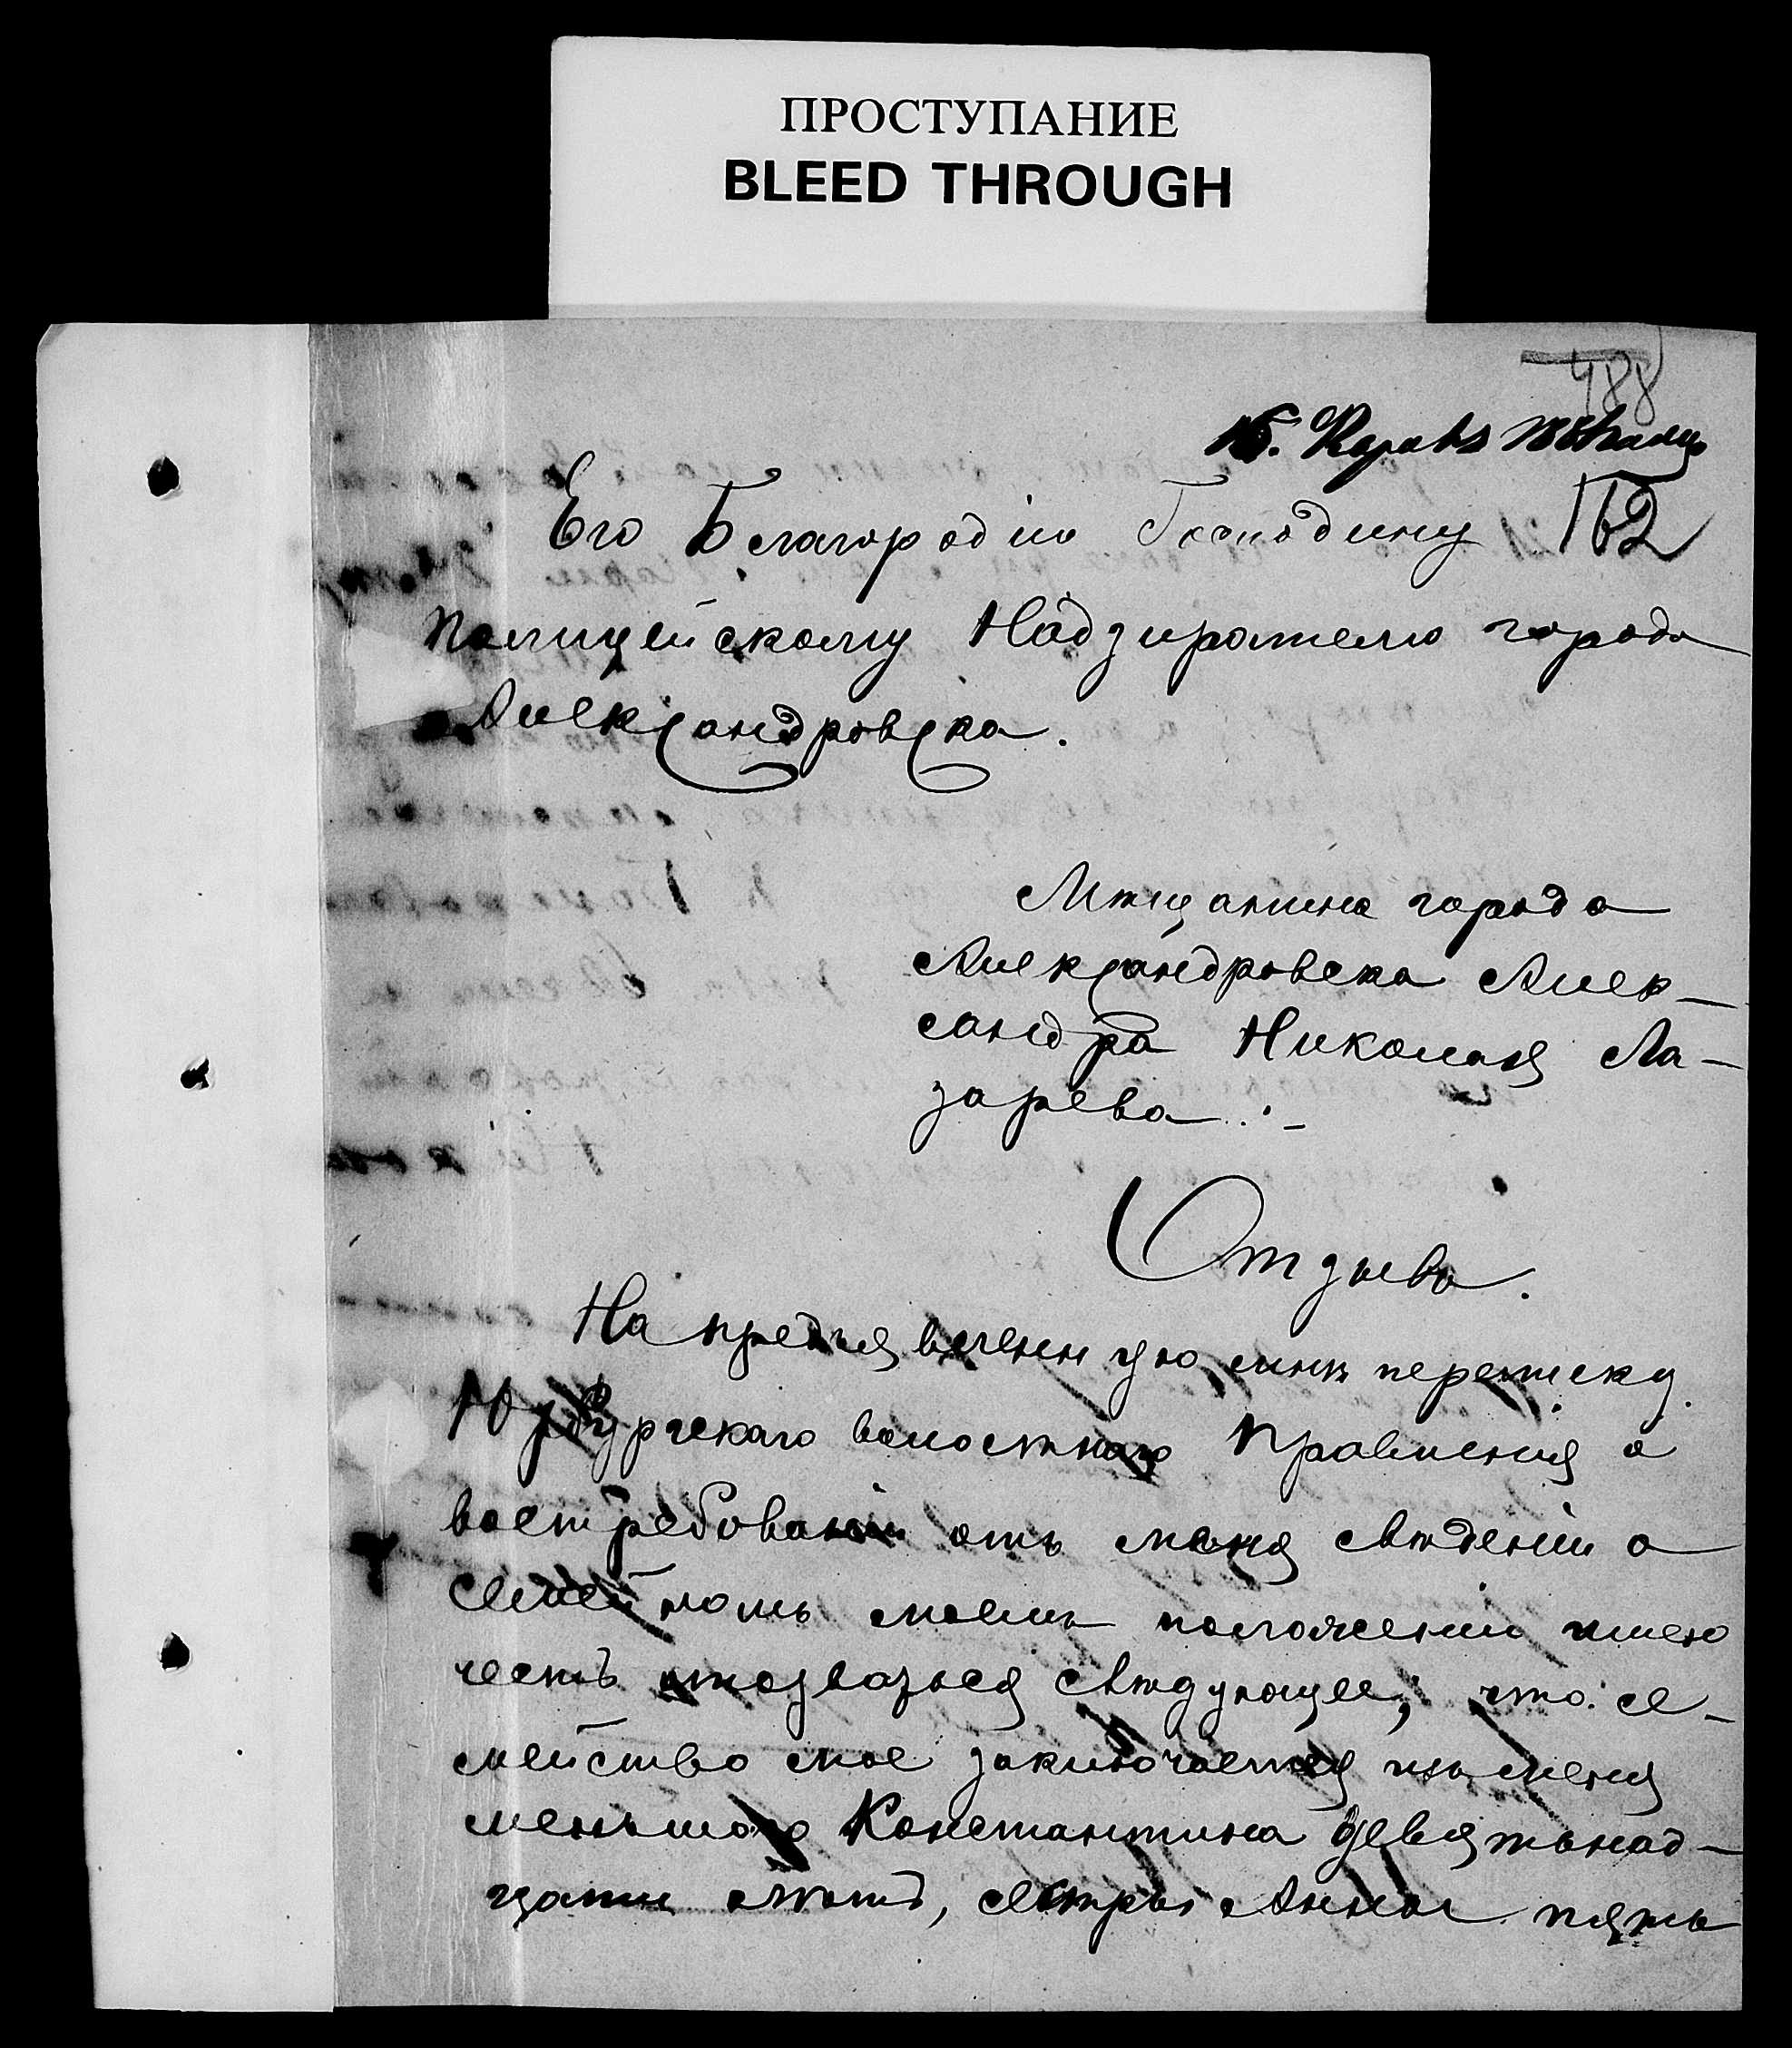 ПРОСТУПАНИЕ
BLEED THROUGH
488
Его Благородiю Господину 162
Полицейскому Надзирателю города
Александровска.
Мѣщанина города
Александровска Алек-
сандра Николая Ла-
зарева.
Отзывъ.
На предъявленную мнѣ переписку
волостнаго Правленiя о
востребованiи отъ меня свѣденiи о
семейномъ моемъ положенiи имею
честь отозваться слѣдующее; что се-
мейство мое заключается изъ меня
меньшого Константина девятьнад-
цати лѣтъ, сестры Анны пять